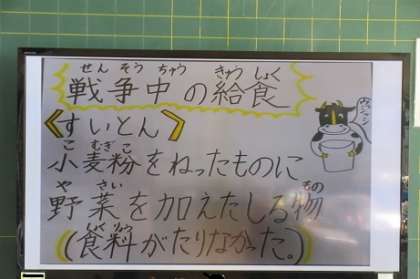 せんそうちゅう きゅうしょく
戦争中の給食
《すいとん》
こ むぎ こ
小麦粉をねったものに
や さい もの
野菜を加えたしる物
しょくりょう
(食料がたりなかった。)